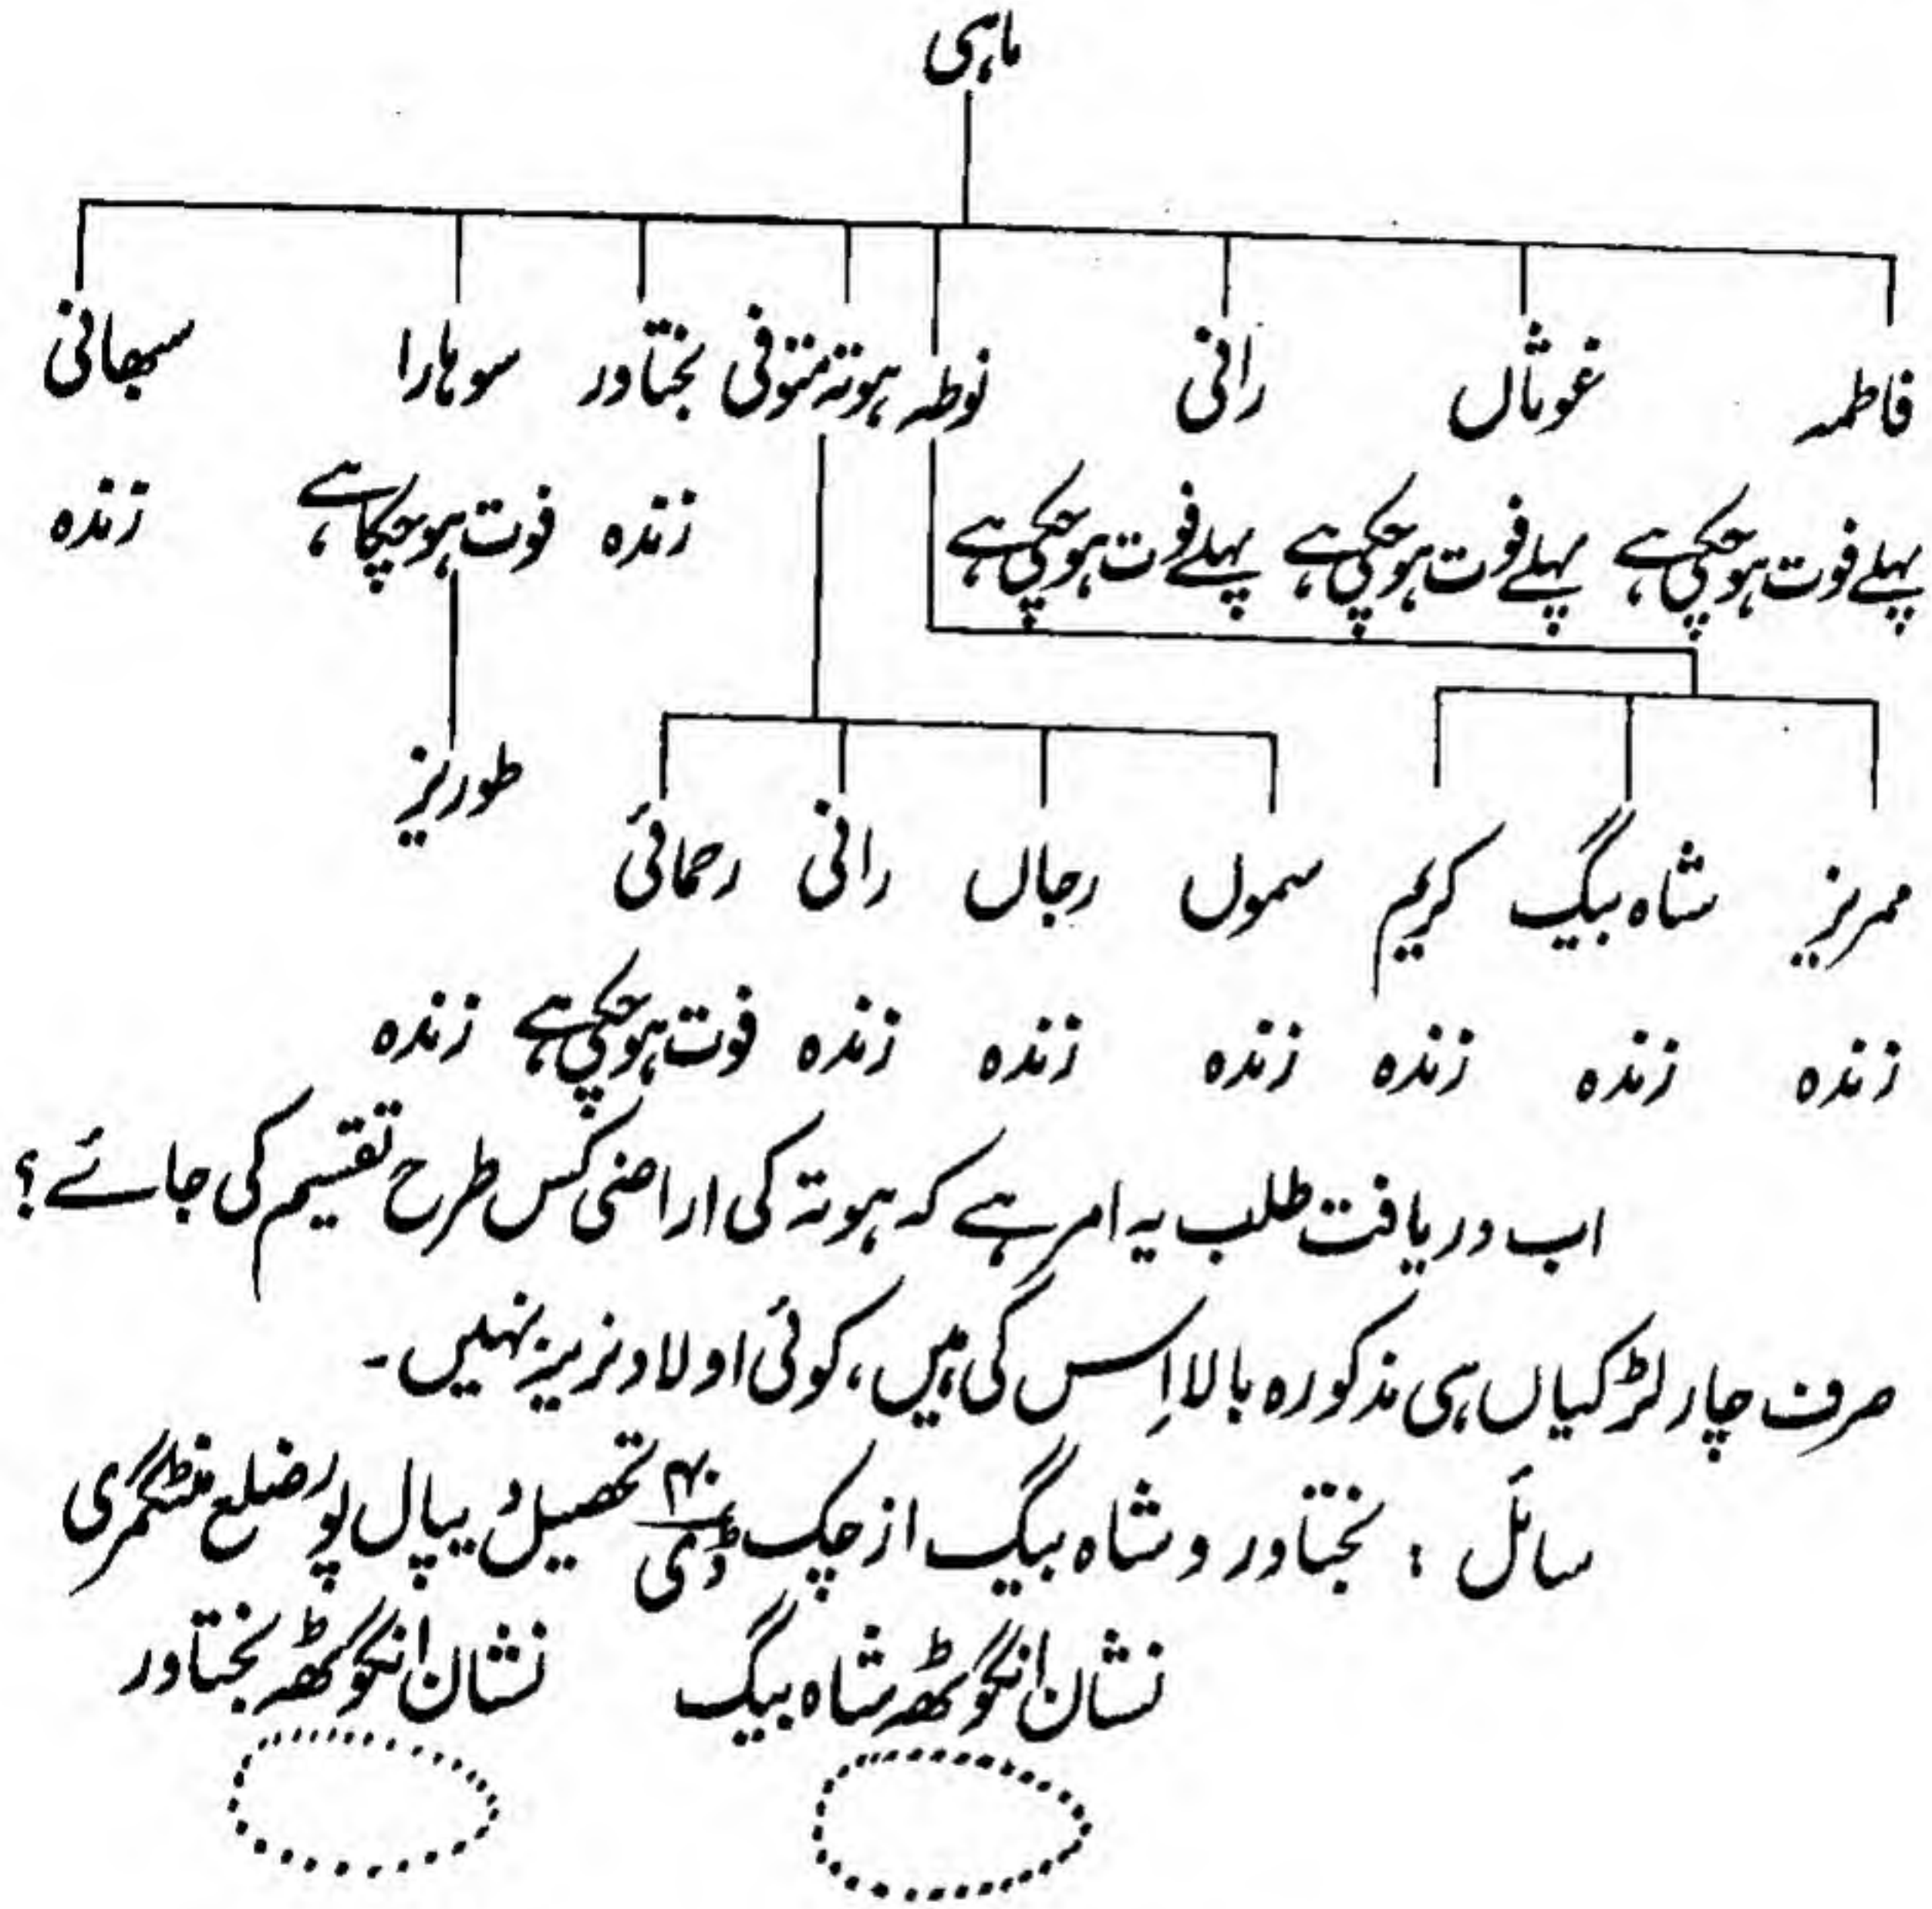 ماہی
فاطمہ غوثاں رانی نوطہ ہوتہ متوفی بختاور سوہارا سبھانی
پہلے فوت ہوچکی ہے پہلے فوت ہوچکی ہے پہلے فوت ہوچکی ہے زندہ فوت ہوچکا ہے، زندہ
طوریز
ممریز شاہ بیگ کریم سموں رجاں رانی رحمائی
زندہ زندہ زندہ زندہ زندہ زندہ فوت ہوچکی ہے زندہ
اب دریافت طلب یہ امر ہے کہ ہوتہ کی اراضی کس طرح تقسیم کی جائے؟
صرف چار لڑکیاں ہی مذکورہ بالا اِس کی ہیں، کوئی اولاد نرینہ نہیں۔
سائل : بختاور و شاہ بیگ از چک ۴۰/ڈی تحصیل دیپال پور ضلع منٹگمری
نشان انگوٹھہ شاہ بیگ نشان انگوٹھہ بختاور